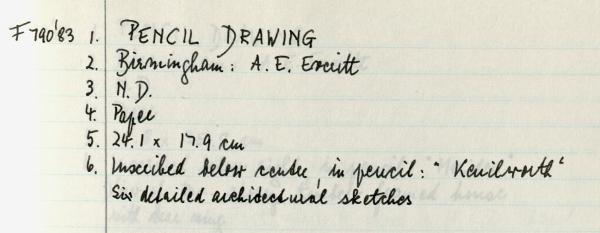 F790'83 1. PENCIL DRAWING
2. Birmingham: A. E. Everitt
3. N.D.
4. Paper
5. 24.1 x 17.9 cm
6. Inscribed below centre, in pencil: "Kenilworth"
Six detailed architectural sketches